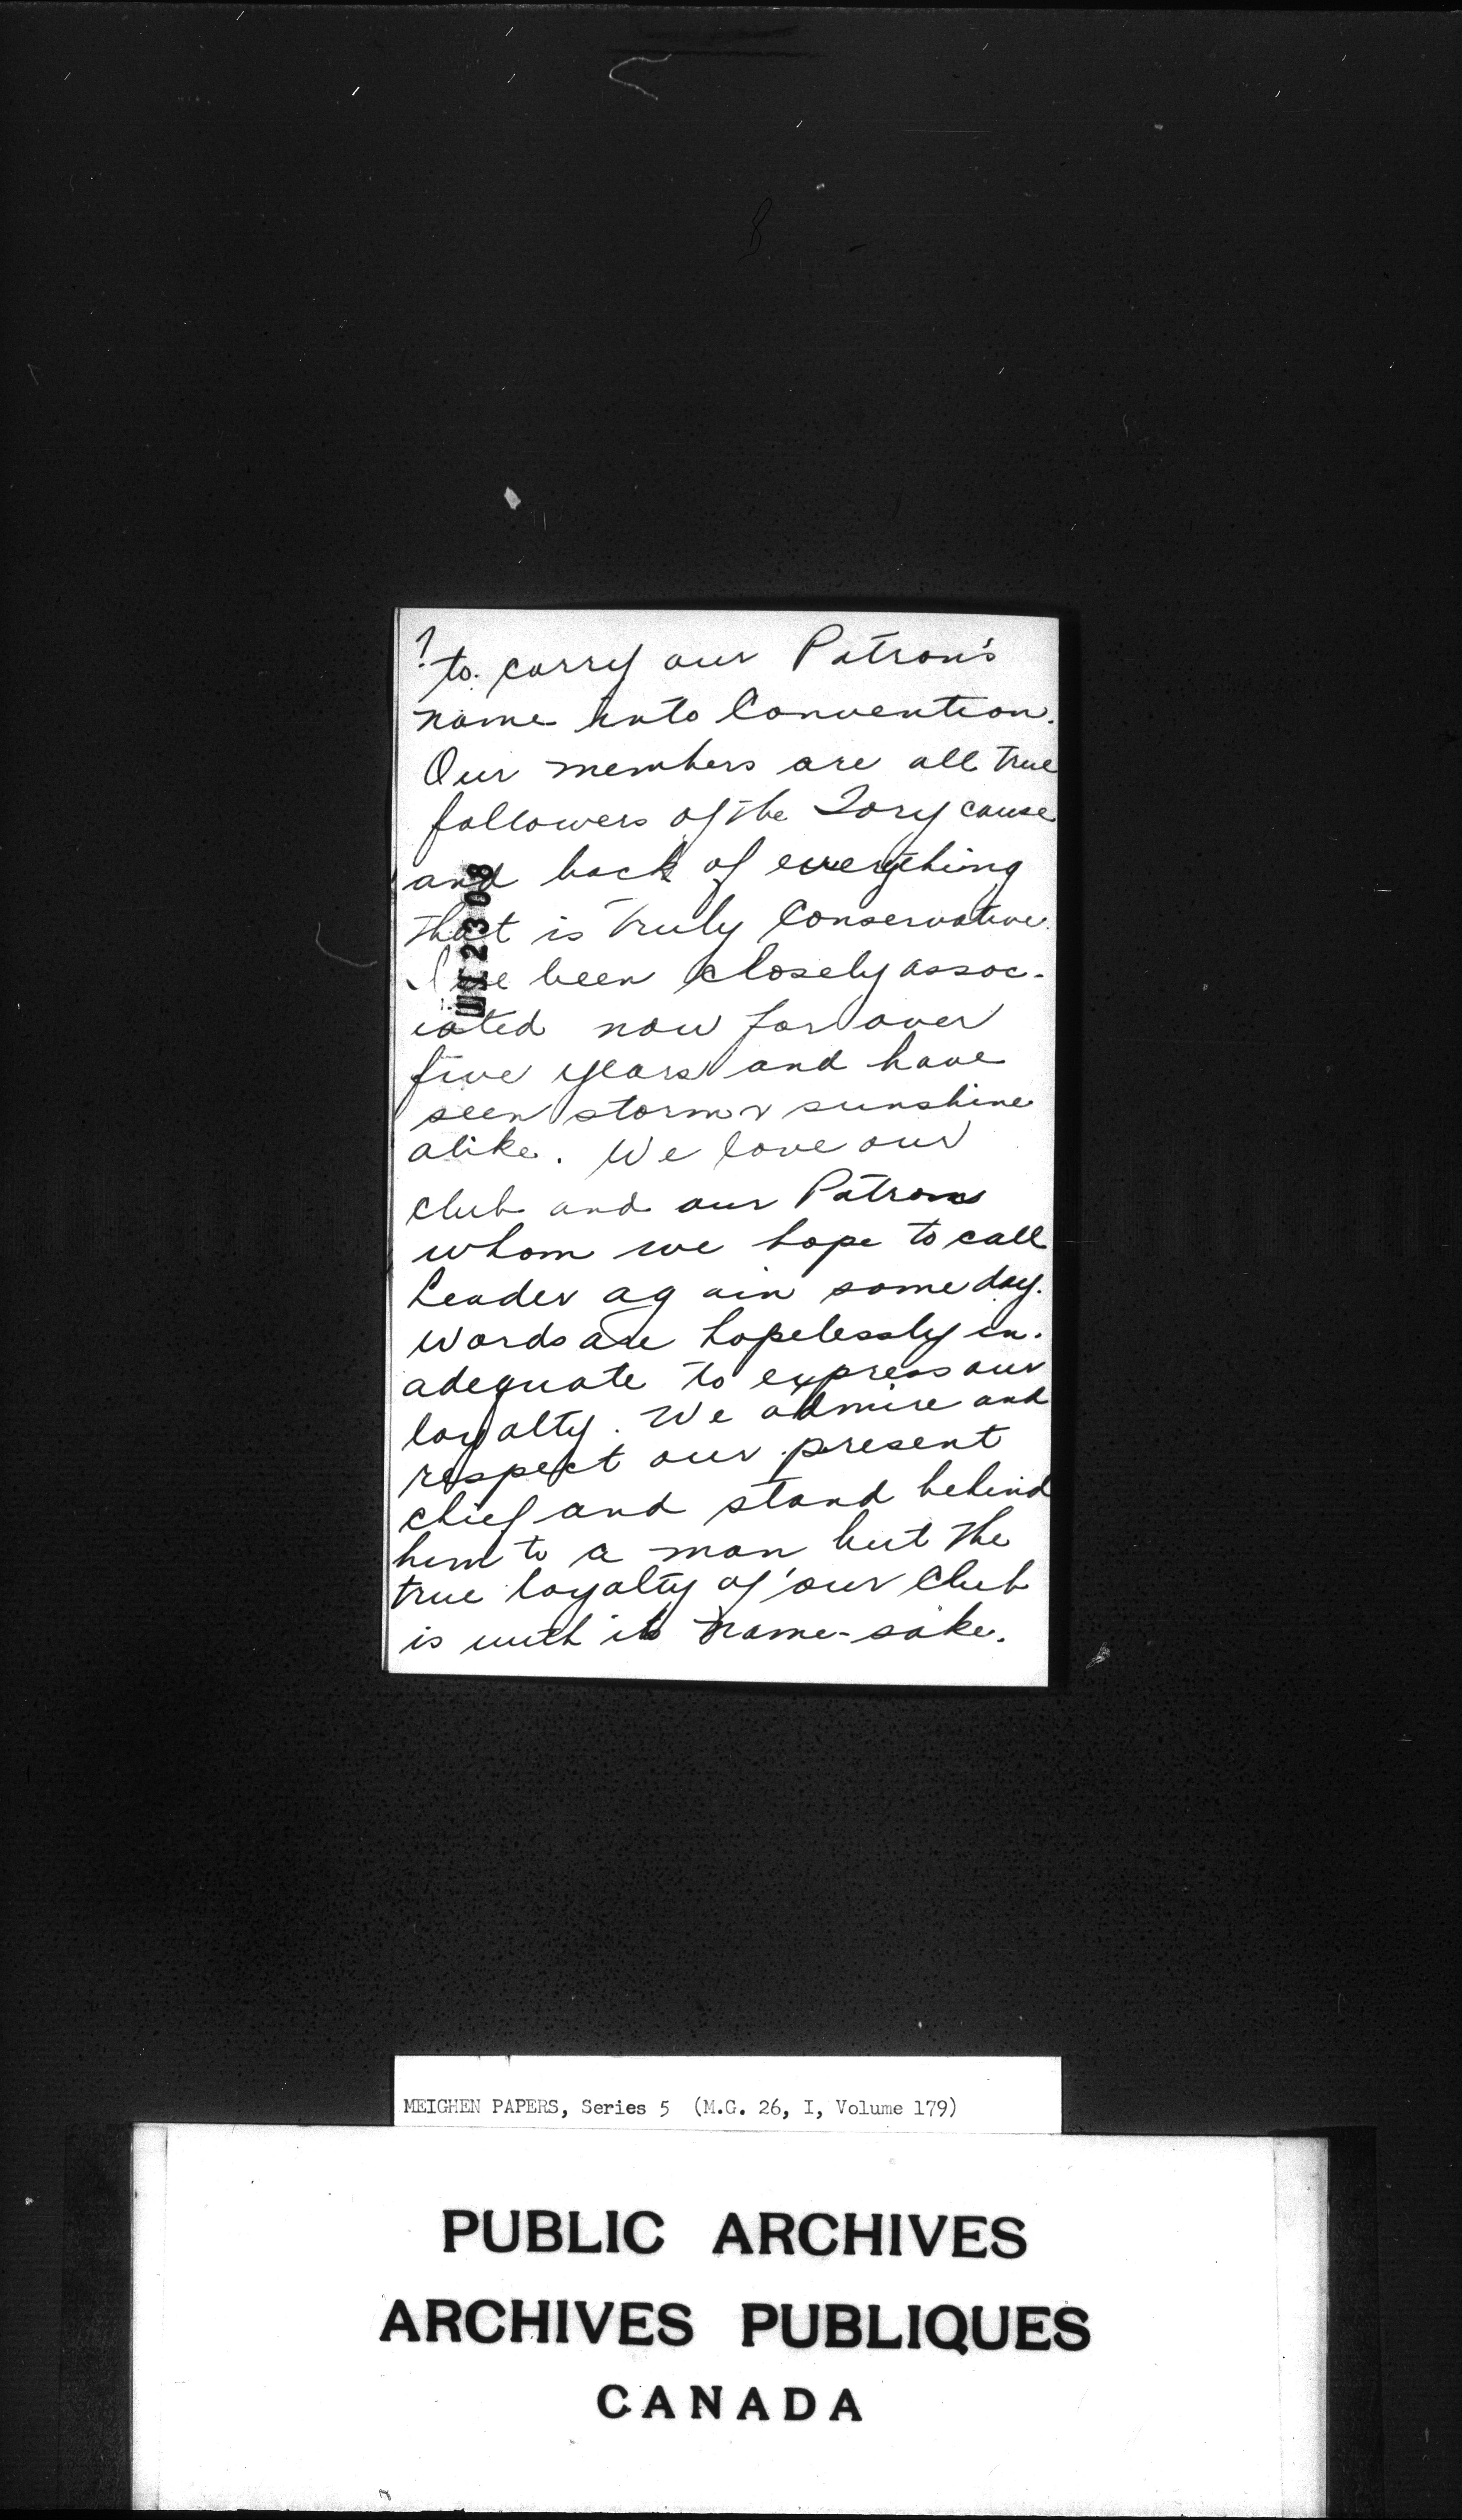 to carry our Patron's
name into Convention.
Our members are all true
followers of the Tory cause
and back of everything
that is truly Conservative.
I've been closely assoc-
iated now for over
five years and have
seen storm & sunshine
alike. We love our
Club and our Patron
whom we hope to call
Leader again some day.
Words are hopelessly in-
adequate to express our
loyalty. We admire and
respect our present
chief and stand behind
him to a man but the
true loyalty of our Club
is with its name-sake.
MEIGHEN PAPERS, Series 5 (M.G. 26, I, Volume 179)
PUBLIC ARCHIVES
ARCHIVES PUBLIQUES
CANADA